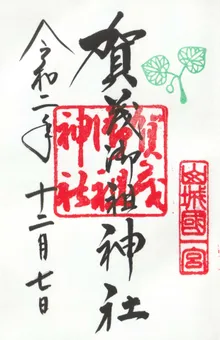 山城國一宮
賀茂御祖神社
賀茂
御祖
神社
令和二年
十二月七日